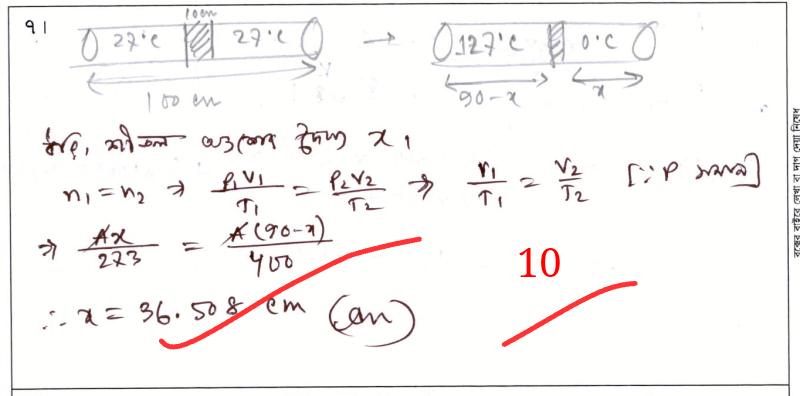 ৭।
10cm
27°C 27°C → 127°C 0°C
100 cm 90-x x
ধরি, শীতল অংশের দৈর্ঘ্য x।
n₁ = n₂ ⇒ P₁V₁/T₁ = P₂V₂/T₂ ⇒ V₁/T₁ = V₂/T₂ [∵ P সমান]
⇒ Ax/273 = A(90-x)/400
10
∴ x = 36.508 cm (Ans)
বক্সের বাইরে লেখা বা দাগ দেয়া নিষেধ